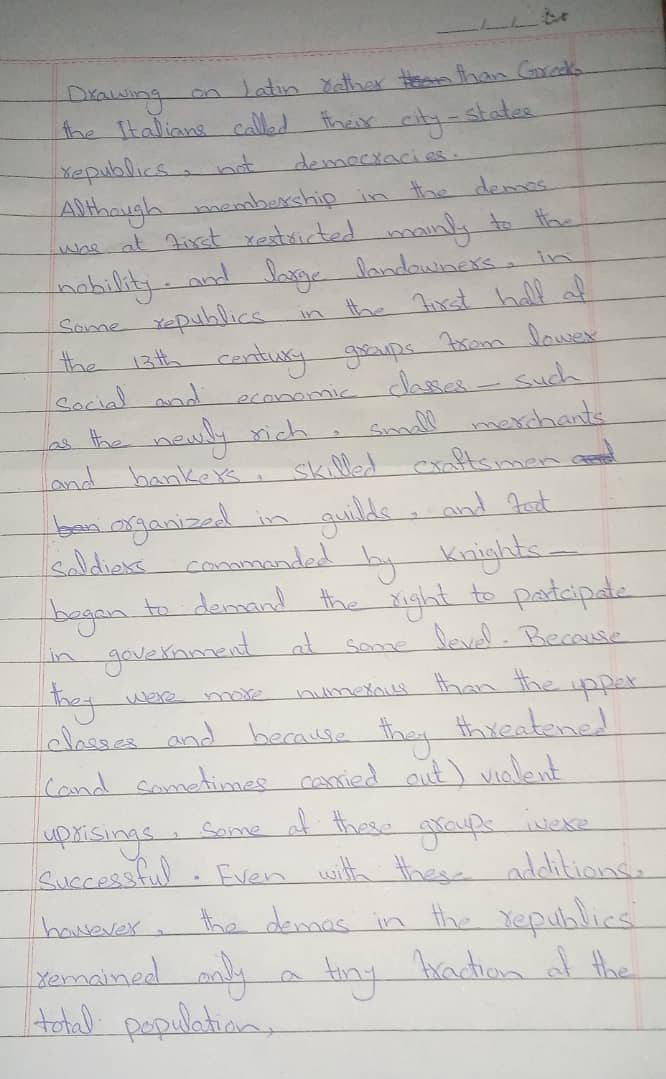 Drawing on Latin rather than Greek,
the Italians called their city-states
republics, not democracies.
Although membership in the demos
was at first restricted mainly to the
nobility and large landowners, in
Some republics in the first half of
the 13th century groups from lower
Social and economic classes — such
as the newly rich, small merchants
and bankers, skilled craftsmen
organized in guilds, and foot
Soldiers commanded by Knights —
began to demand the right to partcipate
in government at some level. Because
they were more numerous than the upper
classes and because they threatened
(and sometimes carried out) violent
uprisings, some of these groups were
Successful. Even with these additions,
however, the demos in the republics
remained only a tiny fraction of the
total population,